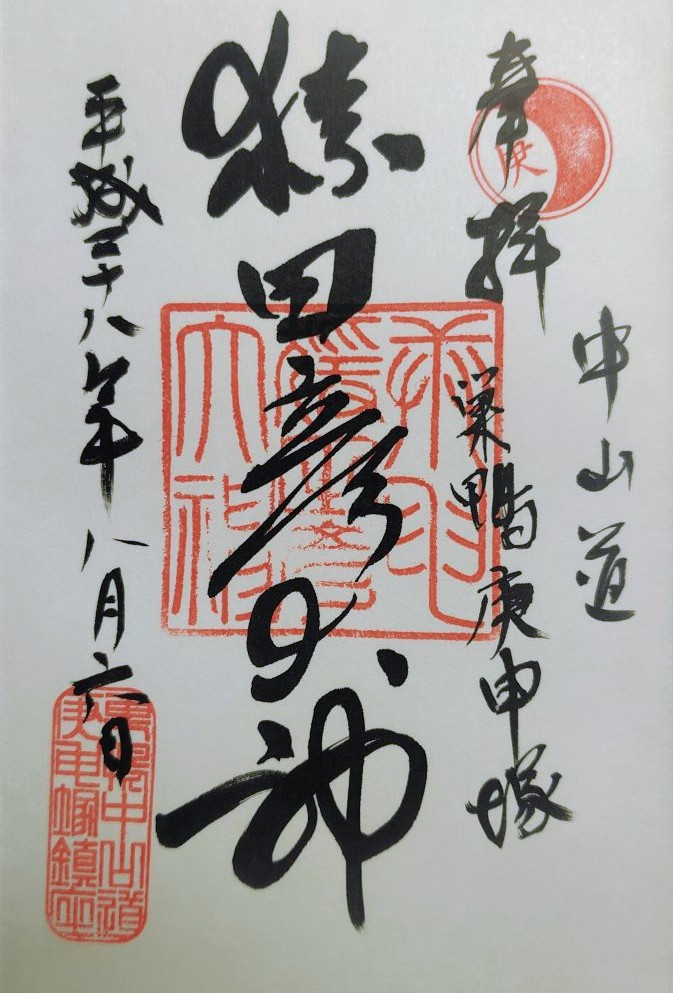 中山道
奉拝
庚
巣鴨庚申塚
猿田彦大神
平成二十八年八月六日
中山道
庚申塚鎮座